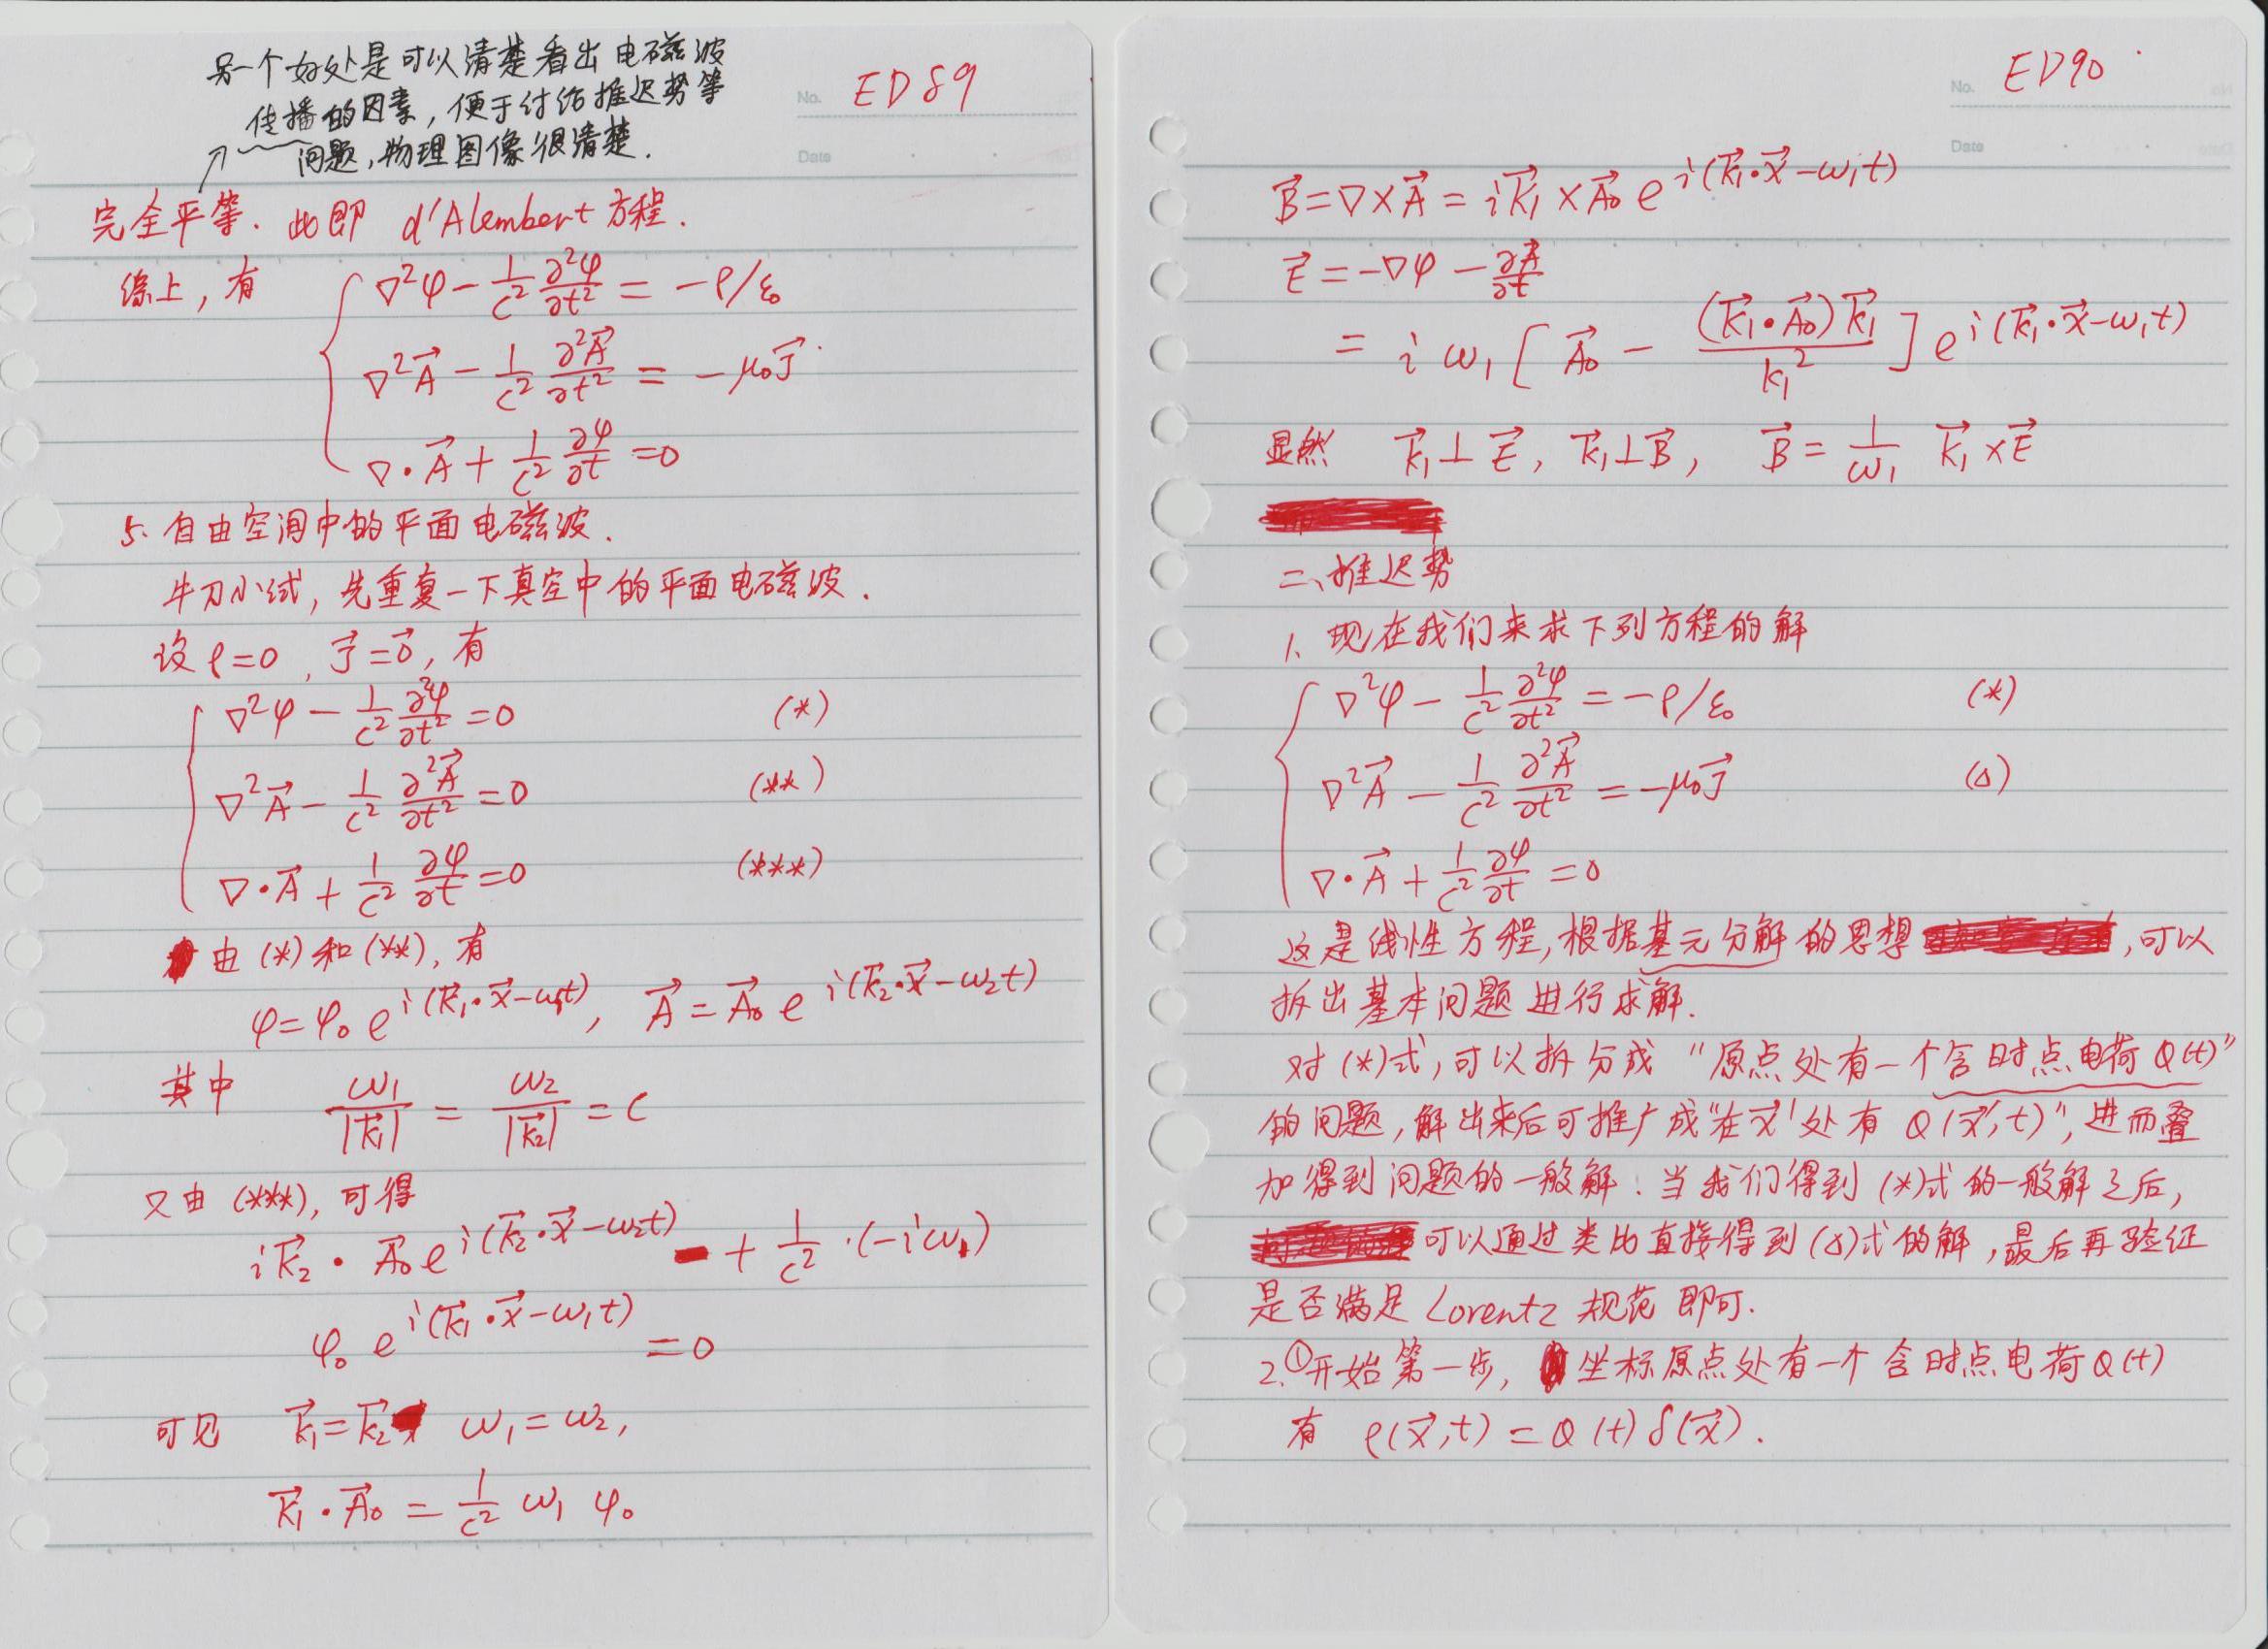 另一个好处是可以清楚看出电磁波
传播的因素，便于讨论推迟势等
问题，物理图像很清楚．
No. ED89
Date
完全平等．此即 d'Alembert 方程．
综上，有 ∇²φ − 1/c² ∂²φ/∂t² = −ρ/ε₀
∇²A⃗ − 1/c² ∂²A⃗/∂t² = −μ₀J⃗
∇·A⃗ + 1/c² ∂φ/∂t = 0
5. 自由空间中的平面电磁波．
牛刀小试，先重复一下真空中的平面电磁波．
设 ρ=0，J⃗=0⃗，有
∇²φ − 1/c² ∂²φ/∂t² = 0 (*)
∇²A⃗ − 1/c² ∂²A⃗/∂t² = 0 (**)
∇·A⃗ + 1/c² ∂φ/∂t = 0 (***)
由 (*) 和 (**)，有
φ = φ₀ e^{i(k⃗₁·x⃗−ω₁t)}, A⃗ = A⃗₀ e^{i(k⃗₂·x⃗−ω₂t)}
其中 ω₁/|k⃗₁| = ω₂/|k⃗₂| = c
又由 (***)，可得
ik⃗₂·A⃗₀e^{i(k⃗₂·x⃗−ω₂t)} + 1/c² ·(−iω₁)
φ₀ e^{i(k⃗₁·x⃗−ω₁t)} = 0
可见 k⃗₁=k⃗₂ ω₁=ω₂,
k⃗₁·A⃗₀ = 1/c² ω₁ φ₀
No. ED90
Date
B⃗ = ∇×A⃗ = ik⃗₁×A⃗₀ e^{i(k⃗₁·x⃗−ω₁t)}
E⃗ = −∇φ − ∂A⃗/∂t
= iω₁[A⃗₀ − (k⃗₁·A⃗₀)k⃗₁/k₁²] e^{i(k⃗₁·x⃗−ω₁t)}
显然 k⃗₁⊥E⃗, k⃗₁⊥B⃗, B⃗ = 1/ω₁ k⃗₁×E⃗
二、推迟势
1、现在我们来求下列方程的解
∇²φ − 1/c² ∂²φ/∂t² = −ρ/ε₀ (*)
∇²A⃗ − 1/c² ∂²A⃗/∂t² = −μ₀J⃗ (Δ)
∇·A⃗ + 1/c² ∂φ/∂t = 0
这是线性方程，根据基元分解的思想，可以
拆出基本问题进行求解．
对(*)式，可以拆分成“原点处有一个含时点电荷Q(t)”
的问题，解出来后可推广成“在x⃗'处有 Q(x⃗',t)”，进而叠
加得到问题的一般解．当我们得到(*)式的一般解之后，
可以通过类比直接得到(Δ)式的解，最后再验证
是否满足 Lorentz 规范即可．
2.①开始第一步，坐标原点处有一个含时点电荷Q(t)
有 ρ(x⃗,t) = Q(t)δ(x⃗)．